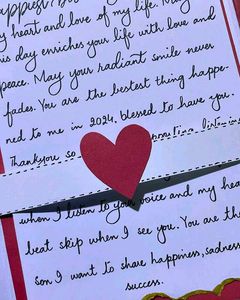 appiest B
y heart and love of my life. May
is day enriches your life with love and
peace. May your radiant smile never
fades. You are the bestest thing happe-
ned to me in 2024, blessed to have you.
Thankyou so
when I listen to your voice and my hea
beat skip when I see you. You are th
son I want to share happiness, sadness
success.